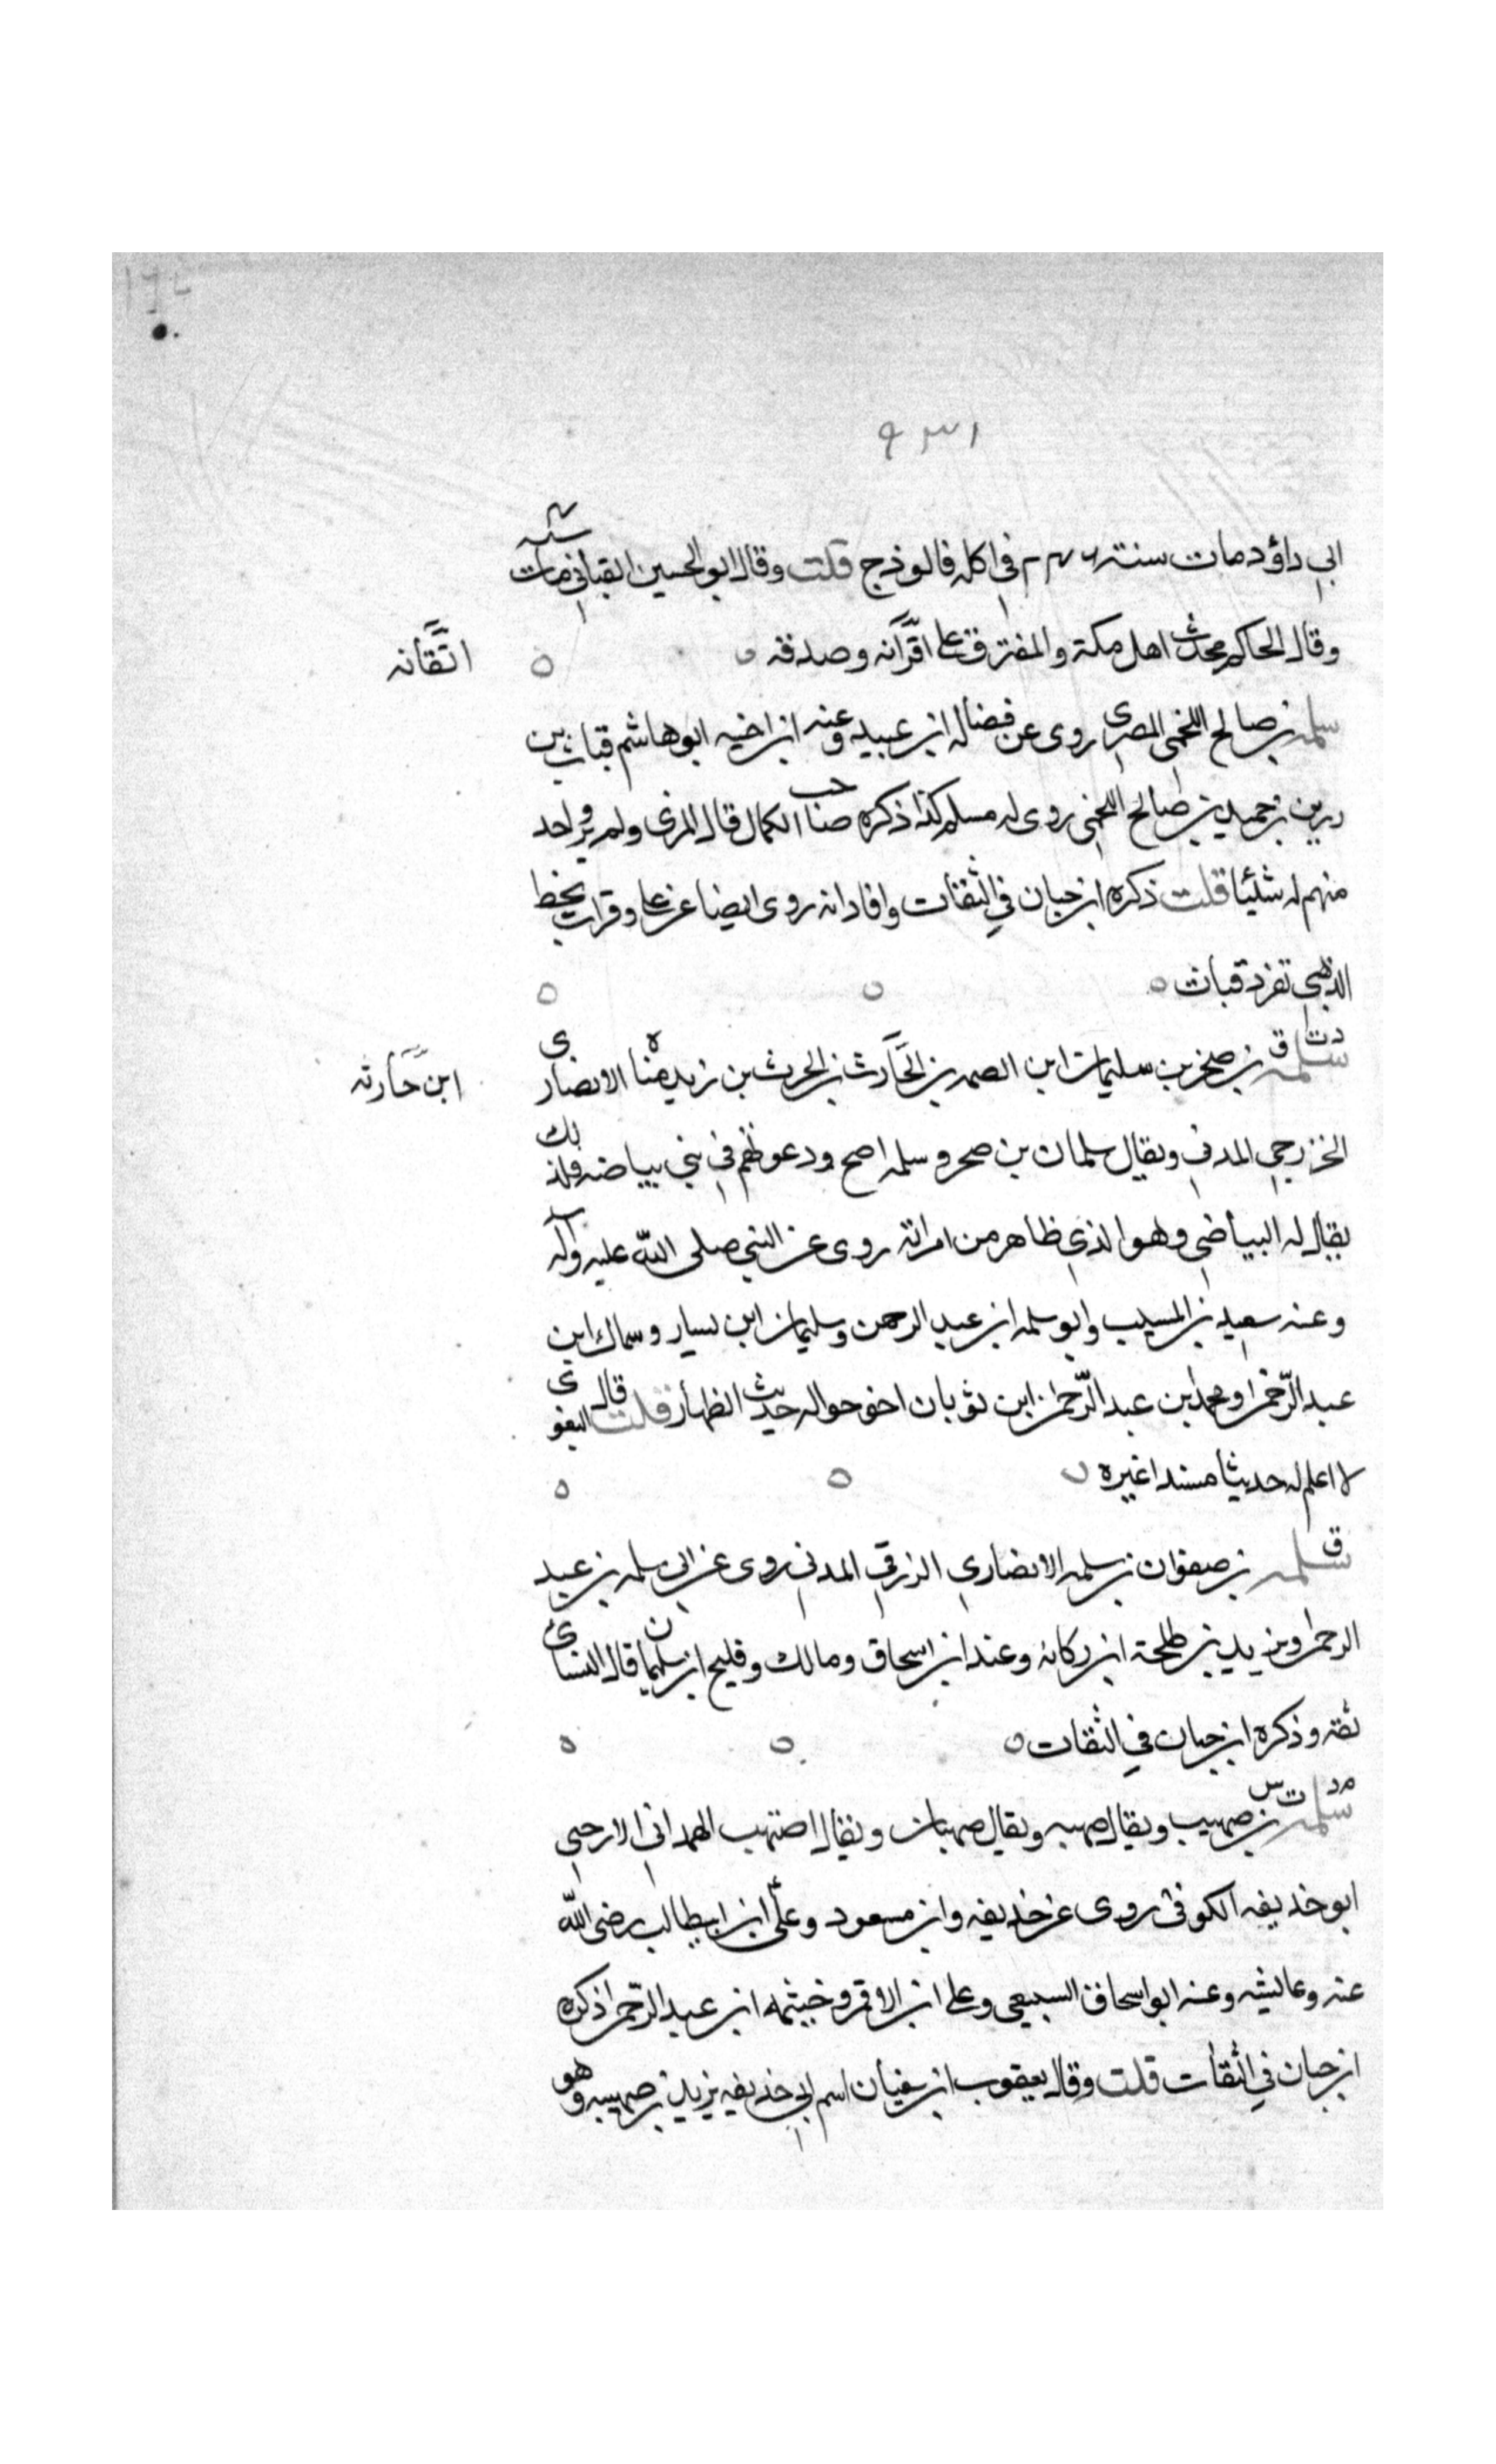 ٩٣١
ابي داؤد مات سنة ٢٤٦ في اكله فالوذج قلت وقال ابو الحسين القباني مات سنه ٤
وقال الحاكم محدث اهل مكة والمتفرق على اقرانه وصدقه
اتقانه
سلمه بن صالح اللخمي المصري روى عن فضاله ابن عبيد وعنه ابن اخيه ابو هاشم قباث بن
رزين بن حميد بن صالح اللخمي روى له مسلم كذا ذكره صاحب الكمال قال المزي ولم يرو احد
منهم له شئيا قلت ذكره ابن حبان في الثقات وافاد انه روى ايضا عن علي وقرات بخط
الذهبي تفرد قباث
د ت ق
سلمه بن صخر بن سليمان ابن الصمه بن الحارث بن الحرث بن زيد مناه الانصاري
ابن حارثه
الخزرجي المدني ويقال سلمان بن صخر وسلمه اصح ودعوتهم في بني بياضه فلذلك
يقال له البياضي وهو الذي ظاهر من امراته روى عن النبي صلى الله عليه وآله
وعنه سعيد بن المسيب وابو سلمه ابن عبد الرحمن وسليمان ابن يسار وسماك ابن
عبد الرحمن ومحمد ابن عبد الرحمن ابن ثوبان اخرجوا له حديث الظهار قلت قال البغوي
لا اعلم له حديثا مسندا غيره
ق
سلمه بن صفوان بن سلمه الانصاري الزرقي المدني روى عن ابي سلمه بن عبد
الرحمن ويزيد بن طلحة ابن ركانه وعنه ابن اسحاق ومالك وفليح ابن سليمان قال النسائ
ثقه وذكره ابن حبان في الثقات
م د ت س
سلمه بن صهيب ويقال صهيبه ويقال صهبان ويقال اصهيب الهمداني الارحبي
ابو حذيفه الكوفي روى عن حذيفه وابن مسعود وعلي ابن ابيطالب رضى الله
عنه وعائشه وعنه ابو اسحاق السبيعي وعلي ابن الاقمر وخيثمه ابن عبد الرحمن ذكره
ابن حبان في الثقات قلت وقال يعقوب ابن سفيان اسم ابي حذيفه يزيد بن صهيبه وهو